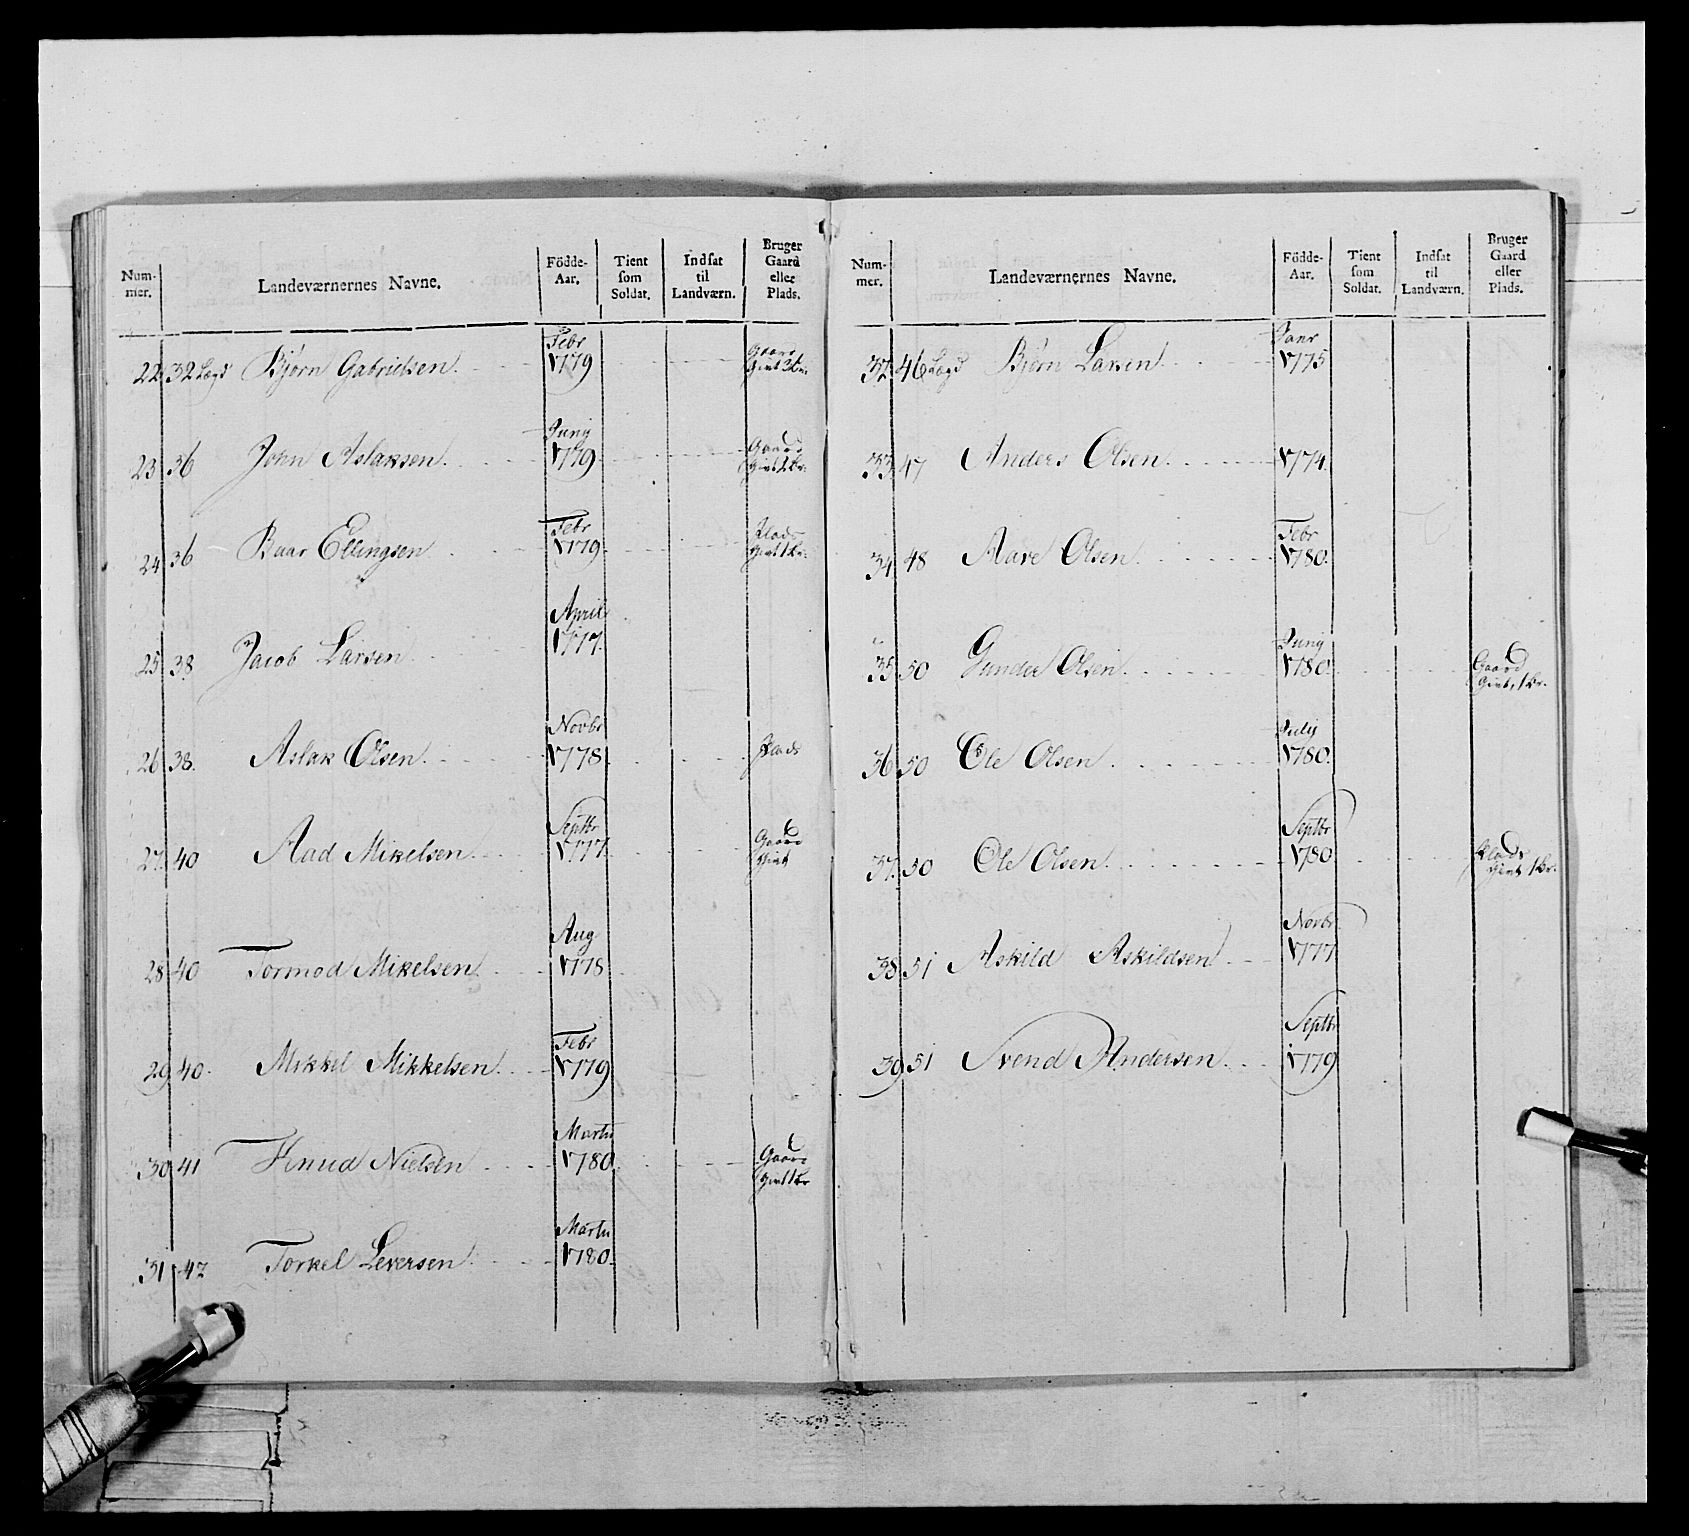 Num-
mer.
Landeværnernes Navne.
Födde-
Aar.
Tient
som
Soldat.
Indsat
til
Landværn.
Bruger
Gaard
eller
Plads.
22 32 Lægd Björn Gabrielsen. Febr 1779 Gaard
Givt 2 Br.
23 36 John Aslaksen. Juny 1779 Gaard
Givt Br.
24 36 Baar Ellingsen Febr 1779 Plads
Givt 1 Br.
25 38 Jacob Larsen April 1777.
26 38. Aslak Olsen. Novbr 1778. Plads
27. 40 Aad Mikelsen. Septbr 1777. Gaard
Givt
28 40 Tormod Mikelsen Aug 1778
29 40. Mikkel Mikkelsen. Febr 1779
30 41 Knud Nielsen Marts 1780. Gaard
Givt 1 Br
31 42 Torkel Leversen Marts 1780.
Num-
mer.
Landeværnernes Navne.
Födde-
Aar.
Tient
som
Soldat.
Indsat
til
Landværn.
Bruger
Gaard
eller
Plads.
32 46 Lægd Björn Larsen Janr 1775
33 47 Anders Olsen. 1774.
34 48 Aare Olsen. Febr 1780.
35 50 Gunder Olsen. Juny 1780. Gaard
Givt, 1 Br.
36 50 Ole Olsen July 1780.
37. 50 Ole Olsen. Septbr 1780 Plads
Givt 1 Br.
38 51 Askild Askildsen Novbr 1777
39 51 Svend Andersen. Septbr 1779